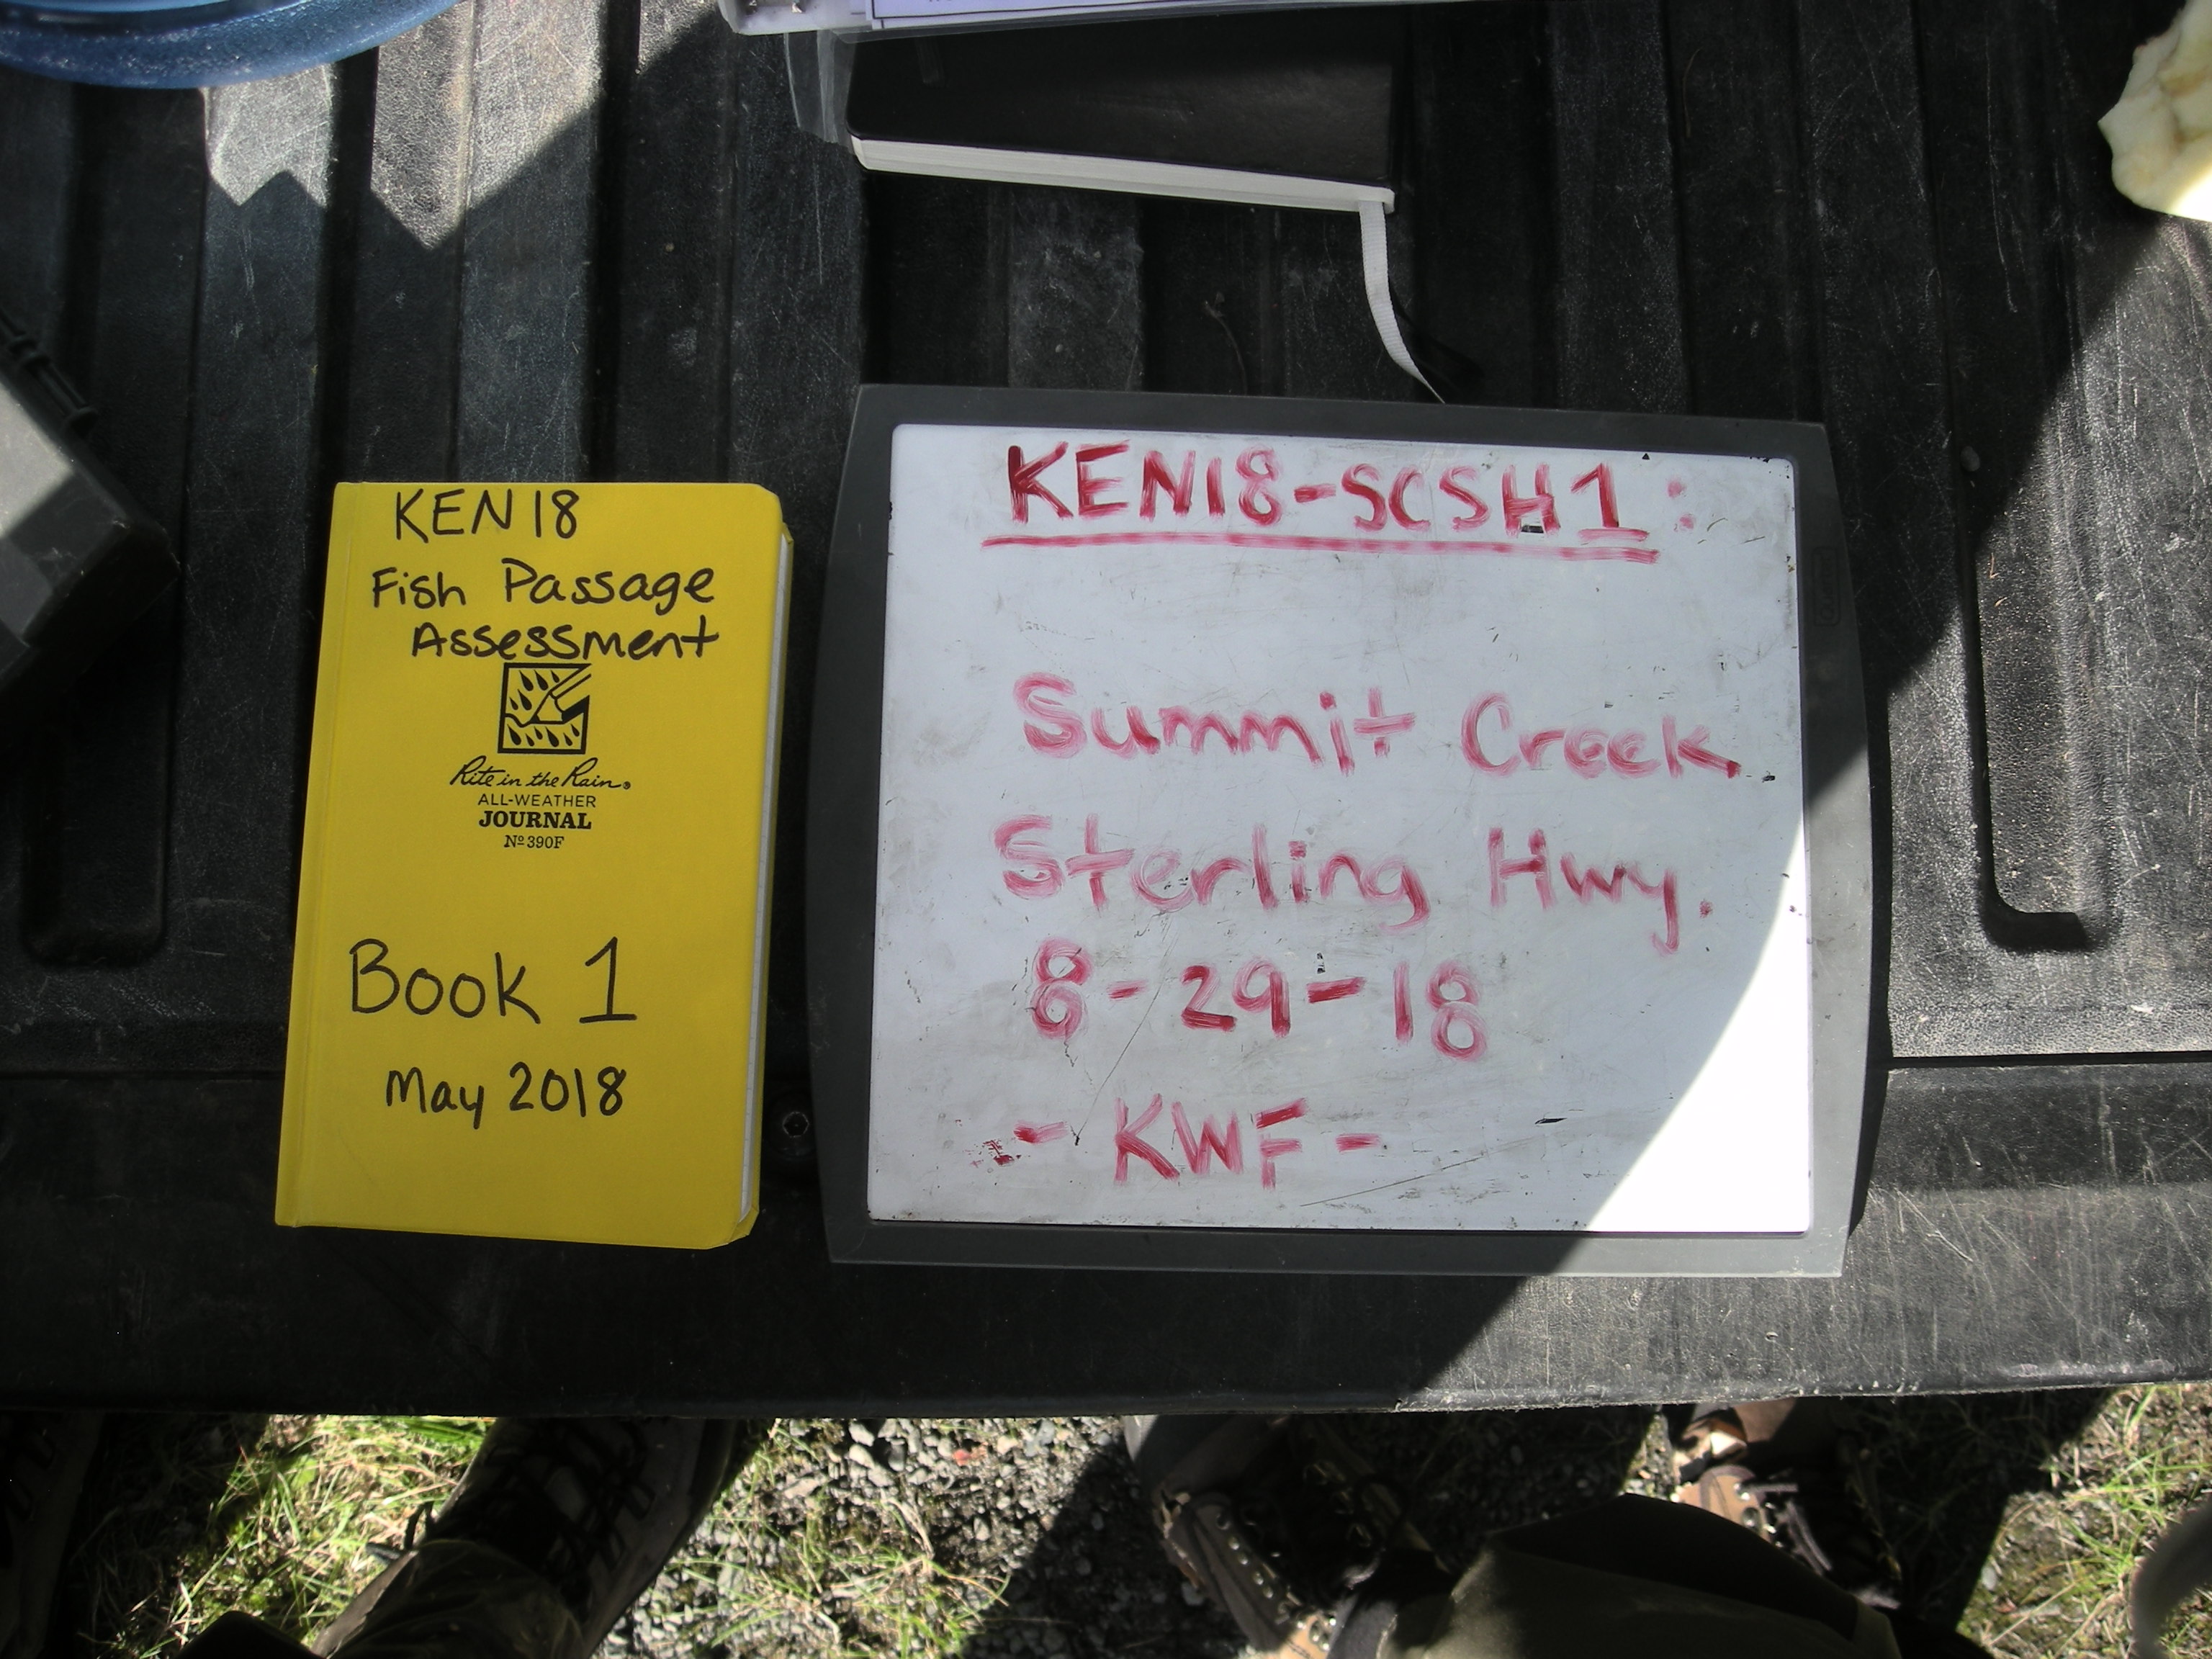 KEN18
Fish Passage
Assessment
Rite in the Rain®
ALL-WEATHER
JOURNAL
Nº 390F
Book 1
May 2018
KEN18-SCSH1:
Summit Creek
Sterling Hwy.
8-29-18
- KWF -